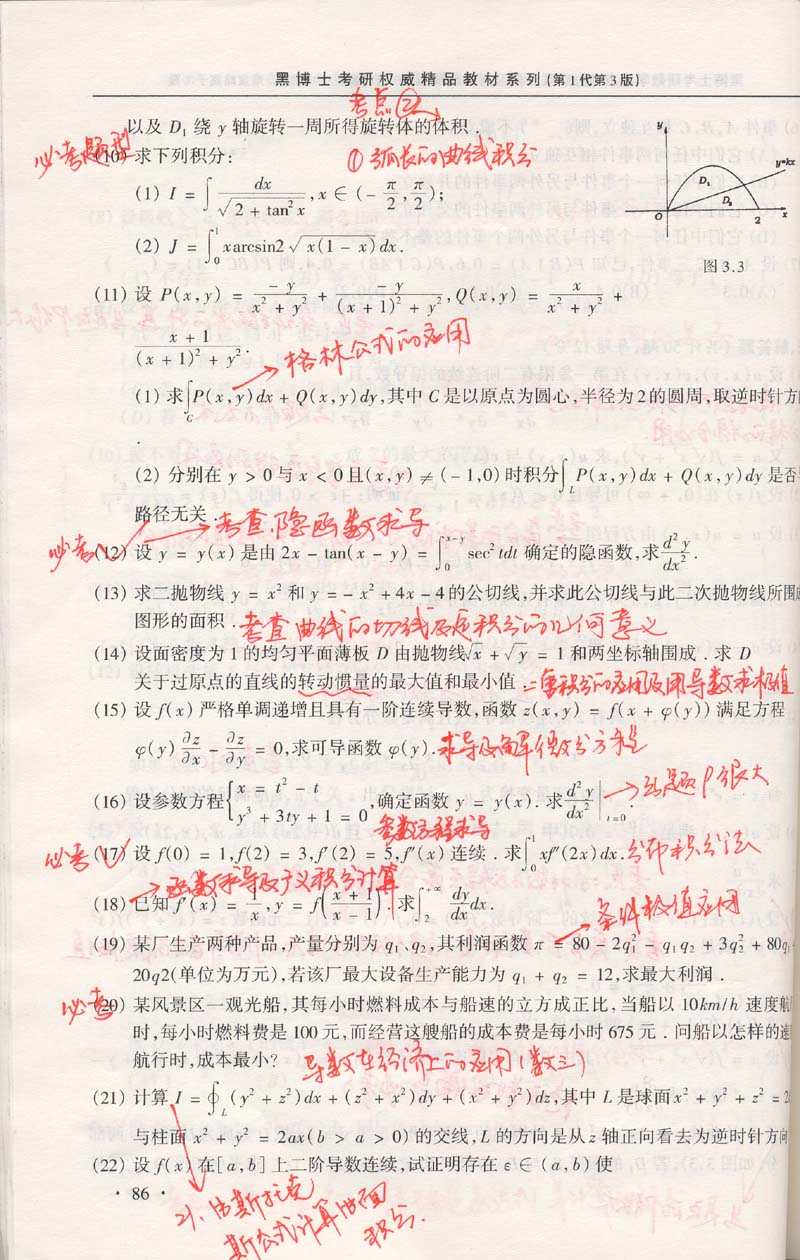 黑博士考研权威精品教材系列(第1代第3版)
考点②
以及 D₁ 绕 y 轴旋转一周所得旋转体的体积.
必考题型
(10) 求下列积分:
①弧长的曲线积分
(1) I = ∫ dx / √(2 + tan²x), x ∈ (- π/2, π/2);
(2) J = ∫₀¹ xarcsin2 √(x(1 - x)) dx.
y
y=kx
D₁
D₂
O
2
x
图 3.3
(11) 设 P(x,y) = - y / (x² + y²) + - y / ((x + 1)² + y²), Q(x,y) = x / (x² + y²) +
(x + 1) / ((x + 1)² + y²).
格林公式的应用
(1) 求∫_C P(x,y)dx + Q(x,y)dy,其中 C 是以原点为圆心,半径为2的圆周,取逆时针方
.
(2) 分别在 y > 0 与 x < 0 且(x,y) ≠ (- 1,0) 时积分∫_L P(x,y)dx + Q(x,y)dy 是否
路径无关.
考查隐函数求导
必考
(12) 设 y = y(x) 是由 2x - tan(x - y) = ∫₀^(x-y) sec²tdt 确定的隐函数,求 d²y/dx².
(13) 求二抛物线 y = x² 和 y = - x² + 4x - 4 的公切线,并求此公切线与此二次抛物线所围
图形的面积.
考查曲线的切线及定积分的几何意义
(14) 设面密度为 1 的均匀平面薄板 D 由抛物线√x + √y = 1 和两坐标轴围成.求 D
关于过原点的直线的转动惯量的最大值和最小值.
二重积分的应用及用导数求极值
(15) 设 f(x) 严格单调递增且具有一阶连续导数,函数 z(x,y) = f(x + φ(y)) 满足方程
φ(y) ∂z/∂x - ∂z/∂y = 0,求可导函数 φ(y).
求导及解微分方程
(16) 设参数方程{x = t² - t
y³ + 3ty + 1 = 0 ,确定函数 y = y(x).求 d²y/dx² |t=0.
出题P很大
参数方程求导
必考
(17) 设 f(0) = 1,f(2) = 3,f′(2) = 5,f″(x) 连续.求∫₀¹ xf″(2x)dx.
分部积分法
函数求导及广义积分计算
(18) 已知 f′(x) = 1/x, y = f((x + 1)/(x - 1)),求∫₂^(+∞) dy/dx dx.
条件极值应用
(19) 某厂生产两种产品,产量分别为 q₁、q₂,其利润函数 π = 80 - 2q₁² - q₁q₂ + 3q₂² + 80q
20q2(单位为万元),若该厂最大设备生产能力为 q₁ + q₂ = 12,求最大利润.
必考
(20) 某风景区一观光船,其每小时燃料成本与船速的立方成正比,当船以 10km/h 速度航
时,每小时燃料费是 100 元,而经营这艘船的成本费是每小时 675 元.问船以怎样的速
航行时,成本最小?
导数在经济上的应用(数三)
(21) 计算 I = ∮_L (y² + z²)dx + (z² + x²)dy + (x² + y²)dz,其中 L 是球面 x² + y² + z² = 2
与柱面 x² + y² = 2ax(b > a > 0) 的交线,L 的方向是从 z 轴正向看去为逆时针方向
(22) 设 f(x) 在[a,b] 上二阶导数连续,试证明存在 ε ∈ (a,b) 使
· 86 ·
21、由斯托克
斯公式计算曲面
积分.